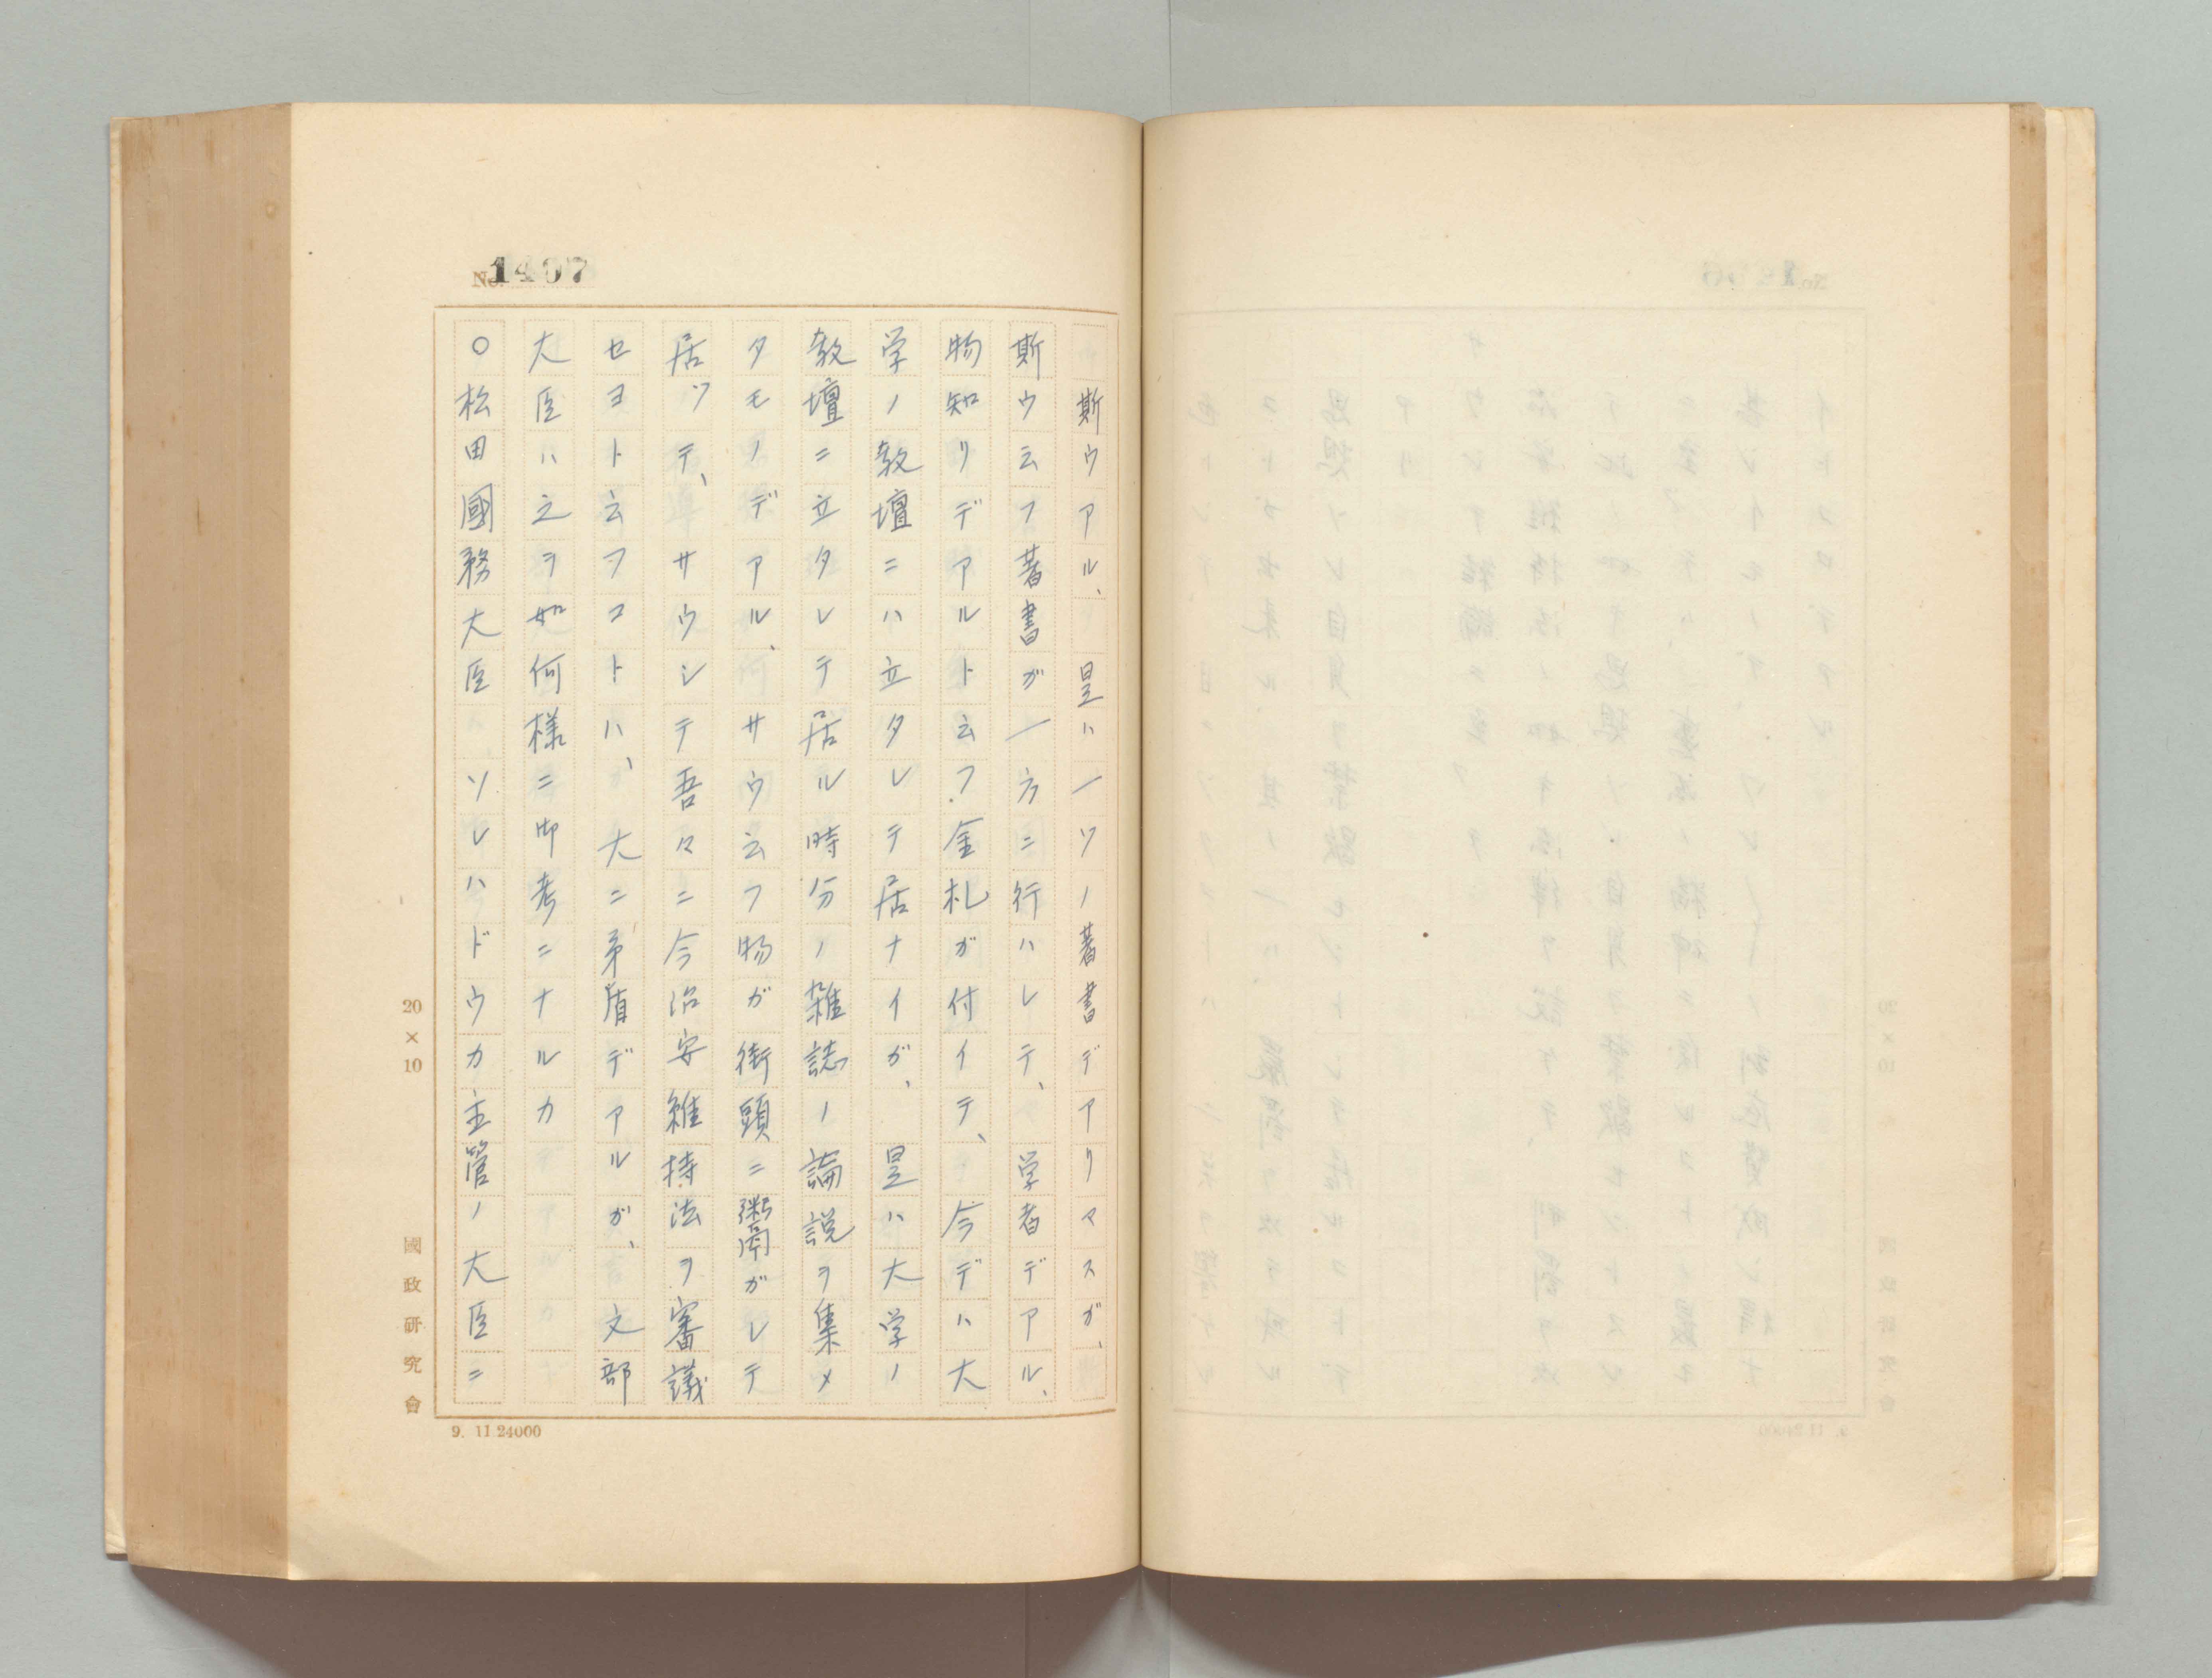 No. 1407
斯ウアル、是ハ一ツノ著書デアリマスガ、
斯ウ云フ著書ガ一方ニ行ハレテ、学者デアル、
物知リデアルト云フ金札ガ付イテ、今デハ大
学ノ教壇ニハ立タレテ居ナイガ、是ハ大学ノ
教壇ニ立タレテ居ル時分ノ雑誌ノ論説ヲ集メ
タモノデアル、サウ云フ物ガ街頭ニ鬻ガレテ
居ツテ、サウシテ吾々ニ今治安維持法ヲ審議
セヨト云フコトハ、大ニ矛盾デアルガ、文部
大臣ハ之ヲ如何様ニ御考ニナルカ
〇松田國務大臣 ソレハドウカ主管ノ大臣ニ
20×10
國政研究會
9. 11.24000